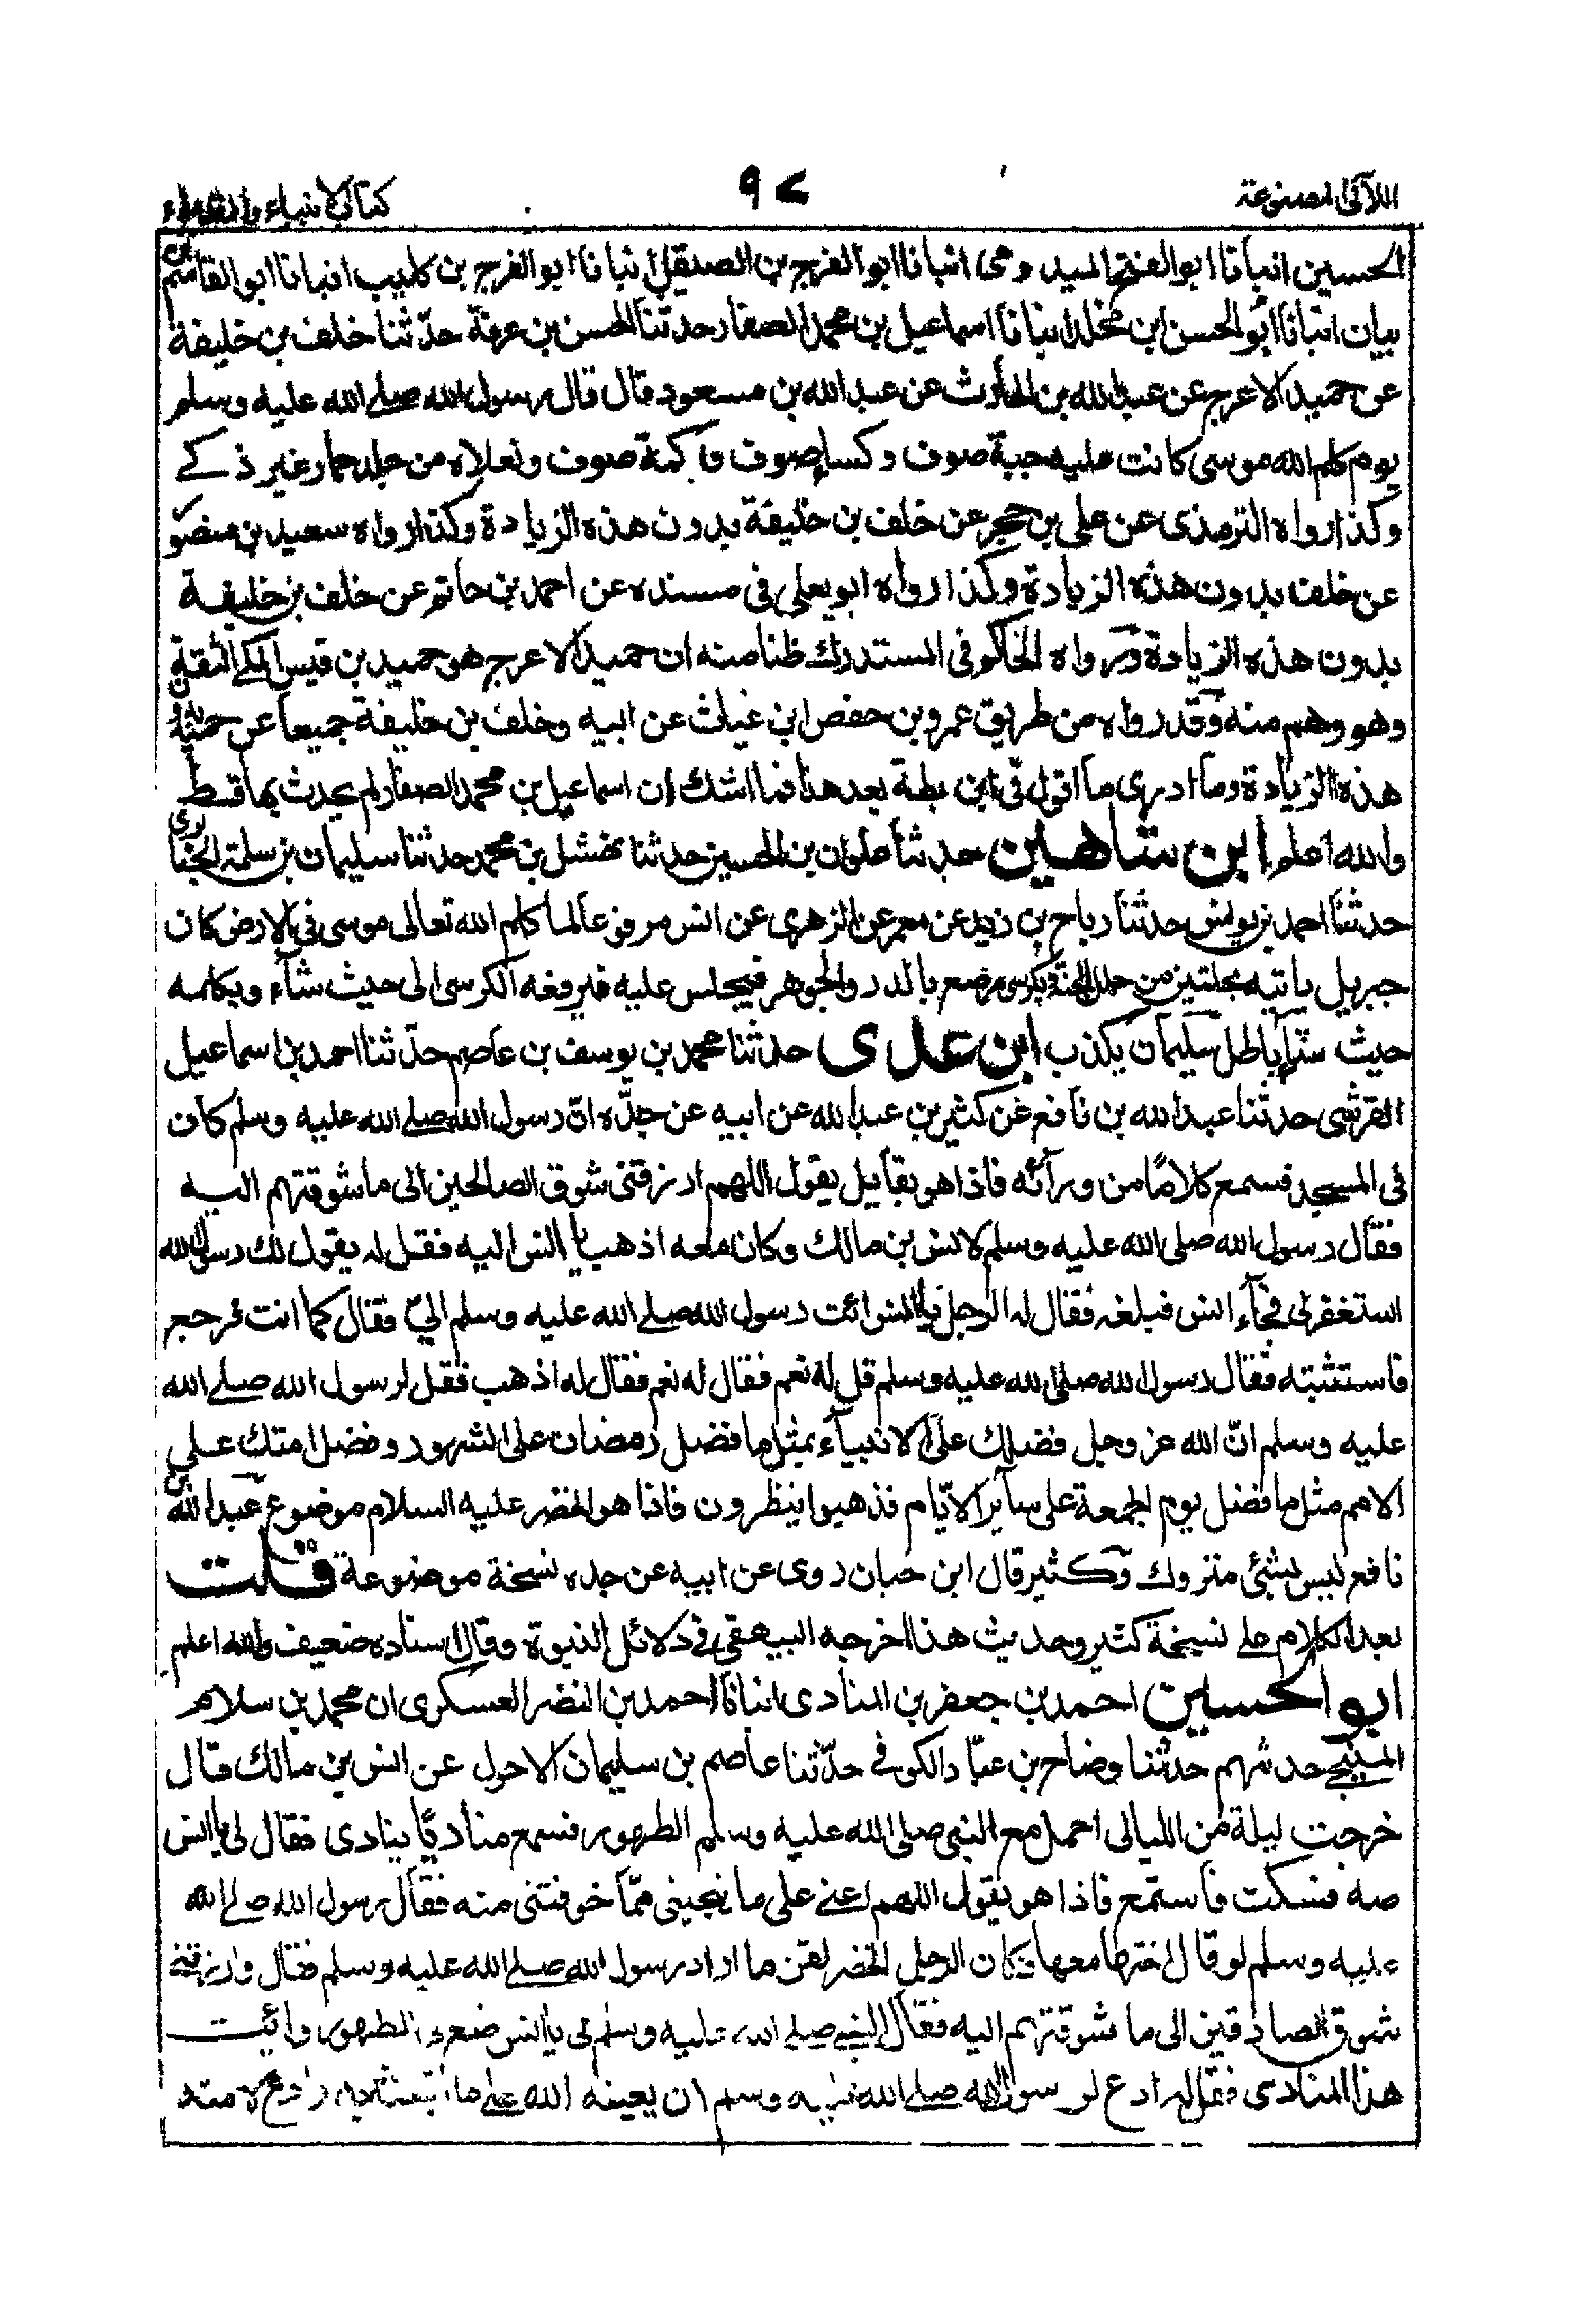 اللآلى المصنوعة
٩٧
كتاب الانبياء والقدماء
الحسين انبانا ابو الفتح الميدومى انبانا ابو الفرج بن الصيقل انبانا ابو الفرج بن كليب انبانا ابو القاسم بن
بيان انبانا ابو الحسن ابن مخلد انبانا اسماعيل بن محمد الصفار حدثنا الحسن بن عرفة حدثنا خلف بن خليفة
عن حميد الاعرج عن عبد الله بن الحارث عن عبد الله بن مسعود قال قال رسول الله صلى الله عليه وسلم
يوم كلم الله موسى كانت عليه جبة صوف وكساء صوف وكمة صوف ونعلاه من جلد حمار غير ذكى
وكذا رواه الترمذى عن على بن حجر عن خلف بن خليفة بدون هذه الزيادة وكذا رواه سعيد بن منصور
عن خلف بدون هذه الزيادة وكذا رواه ابو يعلى فى مسنده عن احمد بن حاتم عن خلف بن خليفة
بدون هذه الزيادة ورواه الحاكم فى المستدرك ظنا منه ان حميد الاعرج هو حميد بن قيس المكى الثقة
وهو وهم منه وقد رواه من طريق عمرو بن حفص ابن غياث عن ابيه وخلف بن خليفة جميعا عن حميد بدون
هذه الزيادة وما ادرى ما اقول فى ابن بطة بعد هذا فما اشك ان اسماعيل بن محمد الصفار لم يحدث بها قط
والله اعلم ابن شاهين حدثنا علوان بن الحسين حدثنا نهشل بن محمد حدثنا سليمان بن سلمة الجنائزى
حدثنا احمد بن يونس حدثنا رباح بن زيد عن معمر عن الزهرى عن انس مرفوعا لما كلم الله تعالى موسى فى الارض كان
جبريل ياتيه بحلتين من حلل الجنة وبكرسى مرضع بالدر والجوهر فيجلس عليه فيرفعه الكرسى الى حيث شاء ويكلمه
حيث شاء باطل سليمان يكذب ابن عدى حدثنا محمد بن يوسف بن عاصم حدثنا احمد بن اسماعيل
القرشى حدثنا عبد الله بن نافع عن كثير بن عبد الله عن ابيه عن جده ان رسول الله صلى الله عليه وسلم كان
فى المسجد فسمع كلاما من ورائه فاذا هو بقايل يقول اللهم ارزقنى شوق الصالحين الى ما شوقتهم اليه
فقال رسول الله صلى الله عليه وسلم لانس بن مالك وكان معه اذهب يا انس اليه فقل له يقول لك رسول الله
استغفر لى فجاء انس فبلغه فقال له الرجل يا انس ائت رسول الله صلى الله عليه وسلم الى فقال كما انت فرجع
فاستثبته فقال رسول الله صلى الله عليه وسلم قل له نعم فقال له نعم فقال له اذهب فقل لرسول الله صلى الله
عليه وسلم ان الله عز وجل فضلك على الانبياء بمثل ما فضل رمضان على الشهور وفضل امتك على
الامم مثل ما فضل يوم الجمعة على سائر الايام فذهبوا ينظرون فاذا هو الخضر عليه السلام موضوع عبد الله بن
نافع ليس بشئ متروك وكثير قال ابن حبان روى عن ابيه عن جده نسخة موضوعة قلت
بعد الكلام على نسخة كثير وحديث هذا اخرجه البيهقى فى دلائل النبوة وقال اسناده ضعيف والله اعلم
ابو الحسين احمد بن جعفر بن المنادى انبانا احمد بن النضر العسكرى ان محمد بن سلام
المنبجى حدثهم حدثنا وضاح بن عباد الكوفى حدثنا عاصم بن سليمان الاحول عن انس بن مالك قال
خرجت ليلة من الليالى احمل مع النبى صلى الله عليه وسلم الطهور فسمع مناديا ينادى فقال لى يا انس
صه فسكت فاستمع فاذا هو يقول اللهم اعنى على ما ينجينى مما خوفتنى منه فقال رسول الله صلى الله
عليه وسلم لو قال اختها معها فكان الرجل الخضر لقن ما اراد رسول الله صلى الله عليه وسلم فقال وارزقنى
شوق الصادقين الى ما شوقتهم اليه فقال النبى صلى الله عليه وسلم لى يا انس ضع لى الطهور وائت
هذا المنادى فقل له ادع لرسول الله صلى الله عليه وسلم ان يعينه الله على ما ابتعثه به وادع لامته